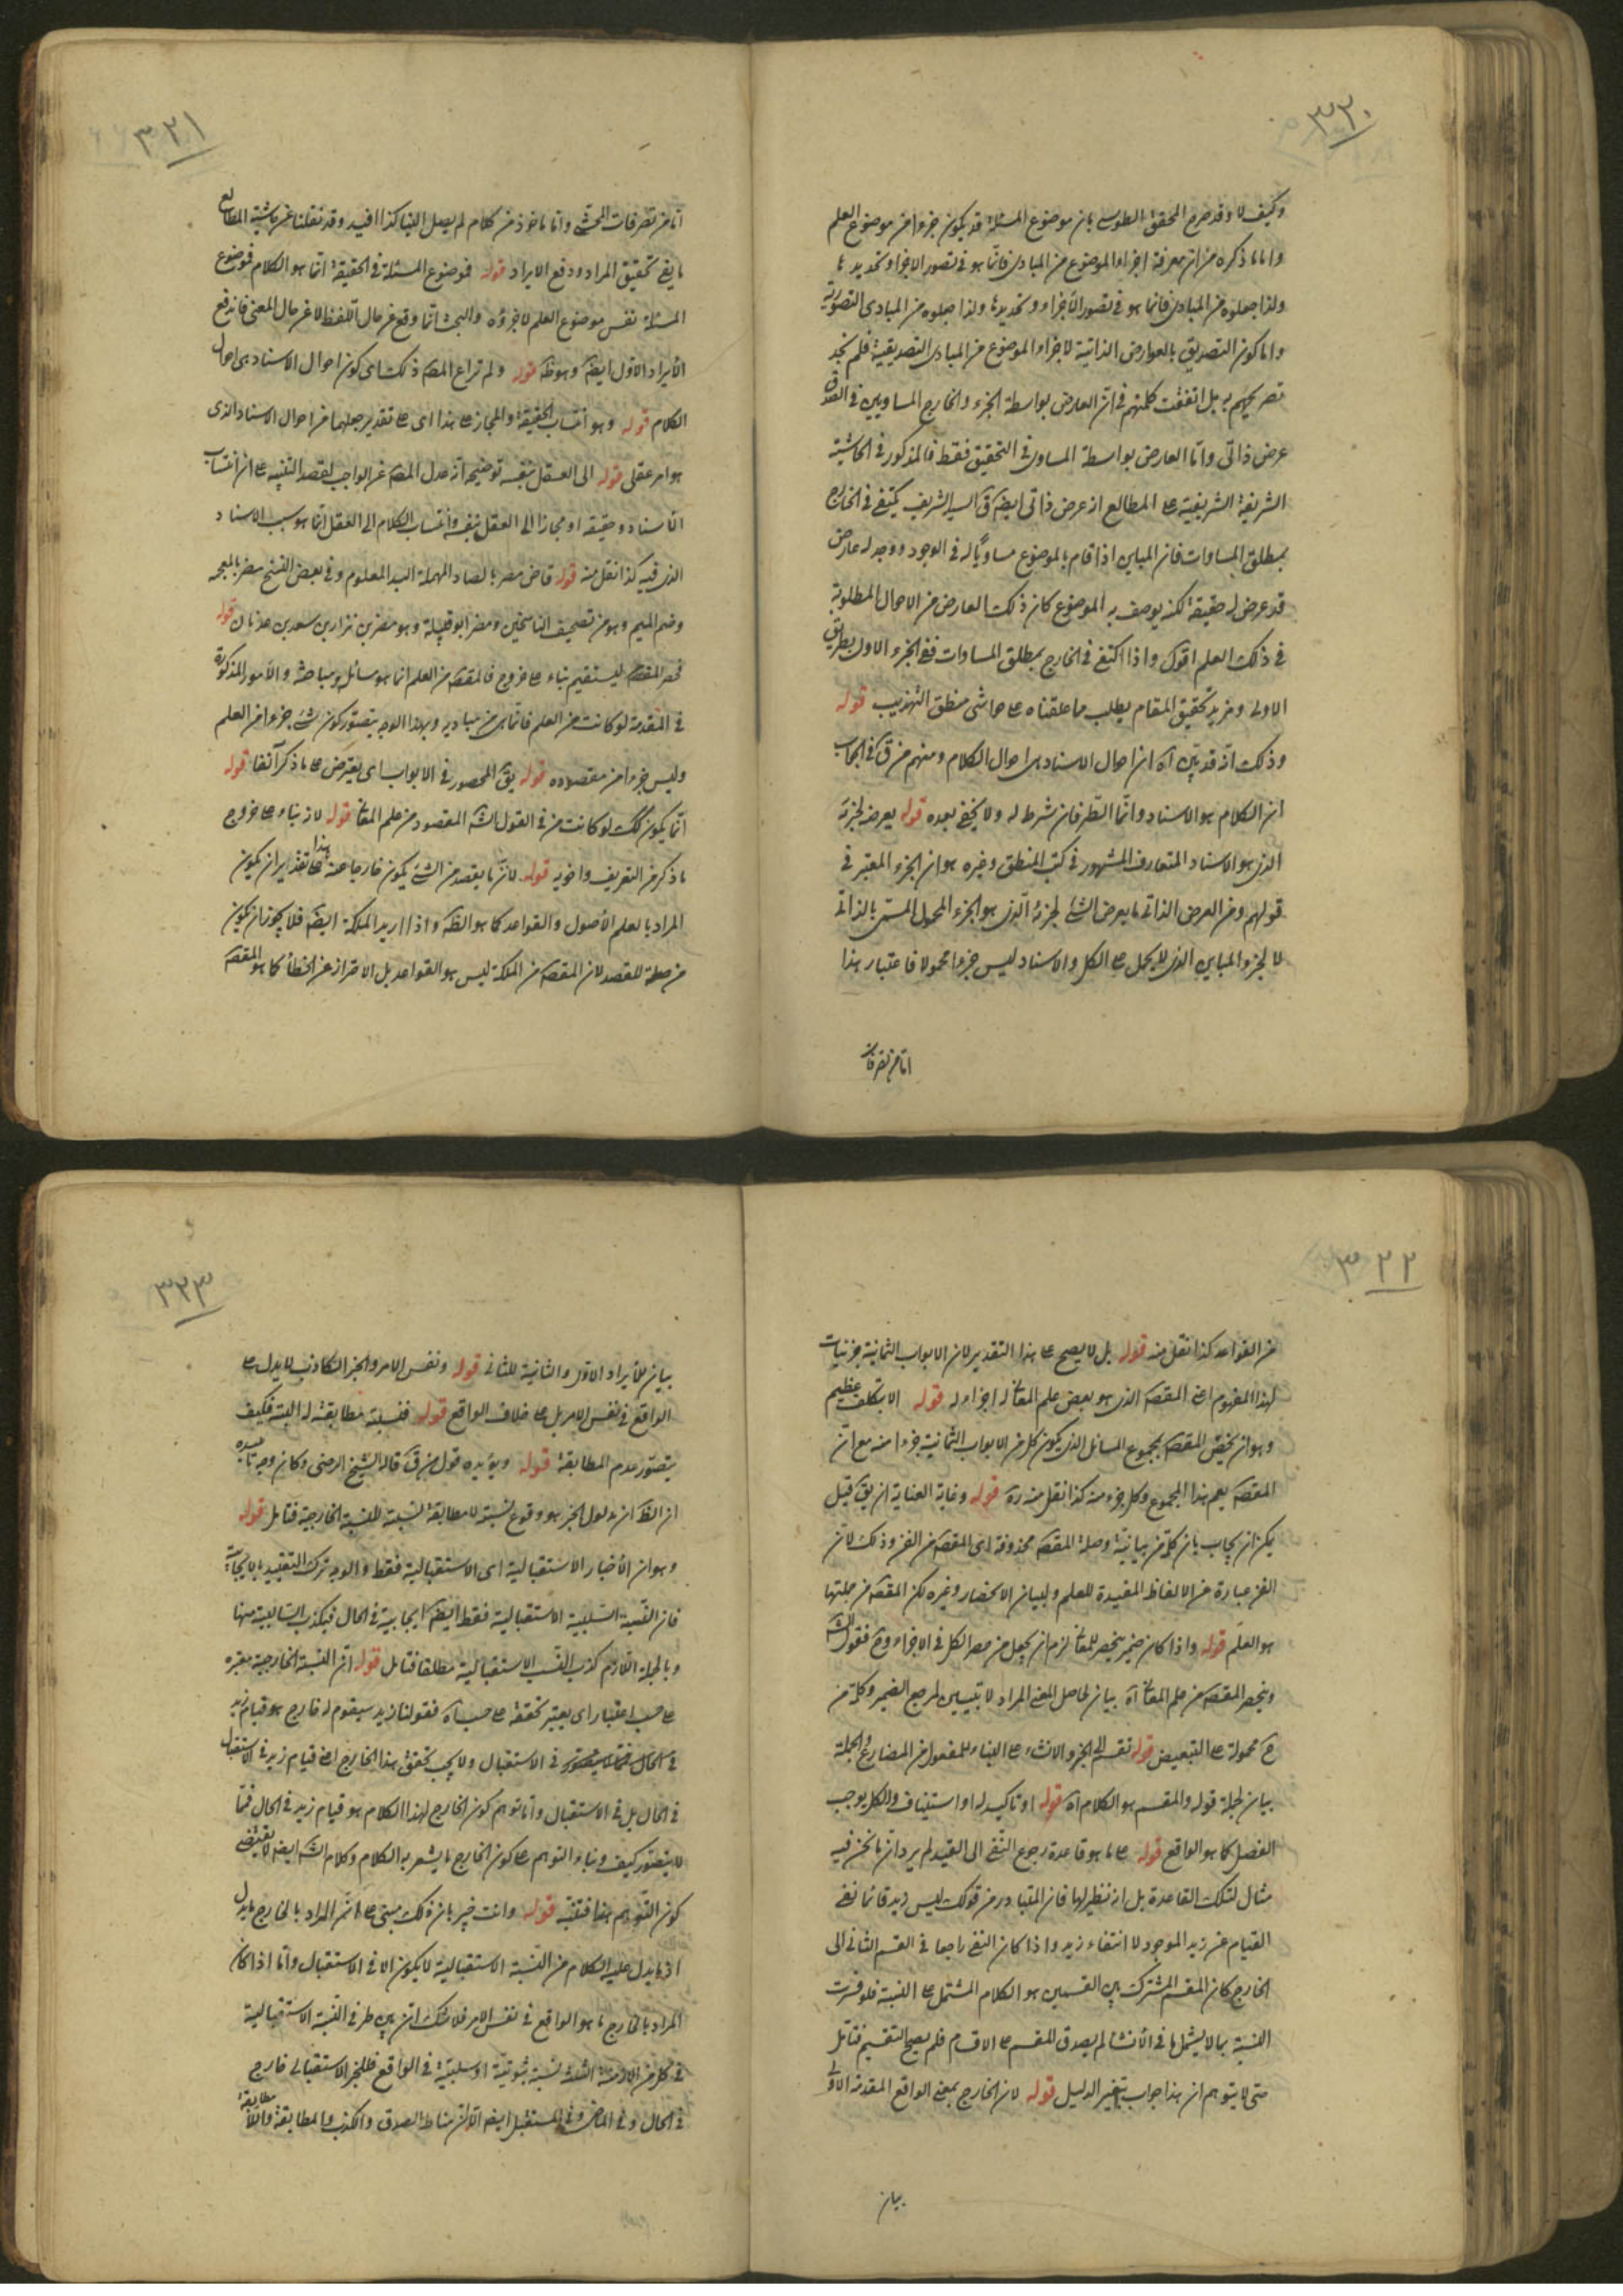 ٣٢٠
وكيف لا وقد صرح المحقق الطوسى بان موضوع المسئلة قد يكون جزءا من موضوع العلم
واما ما ذكره من ان معرفة اجزاء الموضوع من المبادى فانما هو فى تصور الاجزاء وتحديدها
ولذا جعلوه من المبادى فانما هو فى تصور الأجزاء وتحديدها ولذا جعلوه من المبادى التصورية
واما كون التصديق بالعوارض الذاتية لاجزاء الموضوع من المبادى التصديقية فلم نجد
تصريحهم به بل اتفقت كلمتهم فى ان العارض بواسطة الجزء والخارج المساويين فى الصدق
عرض ذاتى واما العارض بواسطة المساوى فى التحقيق فقط فالمذكور فى الحاشية
الشريفة الشريفية على المطالع انه عرض ذاتى ايضا قال السيد الشريف يكتفى فى الخارج
بمطلق المساوات فان المباين اذا قام بالموضوع مساويا له فى الوجود ووجد له عارض
قد عرض له حقيقة لكنه يوصف به الموضوع كان ذلك العارض من الاحوال المطلوبة
فى ذلك العلم اقول واذا اكتفى فى الخارج بمطلق المساوات ففى الجزء الاول بطريق
الاولى ومزيد تحقيق المقام يطلب ما علقناه على حواشى منطق التهذيب قوله
وذلك انه قد تبين آه ان احوال الاسناد هى احوال الكلام ومنهم من ق فى الجواب
ان الكلام هو الاسناد وانما الطرفان شرط له ولا يخفى بعده قوله يعرضه لجزئه
الذى هو الاسناد المتعارف المشهور فى كتب المنطق وغيره هو ان الجزء المعتبر فى
قولهم ومن العرض الذاتى ما يعرض الشئ لجزئه الذى هو الجزء المحمول المسمى بالذاتى
لا الجزء المباين الذى لا يحمل على الكل والاسناد ليس جزءا محمولا فاعتبار هذا
اما من تصرفات
٣٢١
اما من تصرفات المحشى واما ماخوذ من كلام لم يصل الينا كذا افيد وقد نقلنا عن حاشية المطالع
ما يفى تحقيق المراد ودفع الايراد قوله فموضوع المسئلة فى الحقيقة انما هو الكلام فموضوع
المسئلة نفس موضوع العلم لا جزؤه والبحث انما وقع عن حال اللفظ لا عن حال المعنى فاندفع
الأيراد الاول ايضا وهو ظ قوله ولم تراع المص ذلك اى كون احوال الاسناد هى احوال
الكلام قوله وهو انتساب الحقيقة والمجاز على هذا اى على تقدير جعلهما من احوال الاسناد الذى
هو امر عقلى قوله الى العقل بنفسه توضيحه انه عدل المص عن الواجب لقصد التنبيه على ان انتساب
الأسناد حقيقة او مجازا الى العقل بنفسه وانتساب الكلام الى العقل انما هو بسبب الاسناد
الذى فيه كذا نقل منه قوله قاض مصر بالصاد المهملة البلد المعلوم وفى بعض النسخ مضر بالمعجمة
وضم الميم وهو من تصحيف الناسخين ومضر ابو قبيلة وهو مضر بن نزار بن معد بن عدنان قوله
فحصر المقصد ليستقيم بناء على خروج فالمقص من العلم انما هو مسائل ومباحث والأمور المذكورة
فى المقدمة لو كانت من العلم فانما هى من مباديه وبهذا الوجه يتصور كون شئ جزءا من العلم
وليس جزءا من مقصوده قوله بقى المحصور فى الابواب اى يعترض على ما ذكر آنفا قوله
انما يكون كك لو كانت من فى القول الش المقصود من علم المعا قوله لانه بناء على خروج
ما ذكر من التعريف واخويه قوله لان ما يقصد من الشئ يكون خارجا عنه هذا على تقدير ان يكون
المراد بالعلم الأصول والقواعد كما هو الظ واذا اريد الملكة ايضا فلا يجوز ان يكون
من صلة للقصد لان المقص من الملكة ليس هو القواعد بل الاحتراز عن الخطأ كما هو المقص
٣٢٢
من القواعد كذا نقل منه قوله بل لا يصح على هذا التقدير لان الابواب الثمانية جزئيات
لهذا المفهوم اعنى المقص الذى هو بعض علم المعا لا اجزاء له قوله الا بتكلف عظيم
وهو ان يخص المقص بمجموع المسائل الذى يكون كل من الابواب الثمانية جزءا منه مع ان
المقص يعم هذا المجموع وكل جزء منه كذا نقل منه ره قوله وغاية العناية ان يق قيل
يمكن ان يجاب بان كلمة من بيانية وصلة المقص محذوفة اى المقص من الفن وذلك لان
الفن عبارة عن الالفاظ المفيدة للعلم ولبيان الانحصار وغيره لكن المقص من جملتها
هو العلم قوله واذا كان ضمير ينحصر للمعا لزم ان يجعل من حصر الكل فى الاجزاء وح فقول الش
وينحصر المقص من علم المعا آه بيان لحاصل المعنى المراد لا تبيين لمرجع الضمير وكلمة من
ح محمولة على التبعيض قوله نقسم الى الخبر والانشاء على البناء للمفعول من المضارع والجملة
بيان لجملة قوله والمقسم هو الكلام آه قوله او تاكيد له او استيناف والكل يوجب
الفصل كما هو الواقع قوله على ما هو قاعدة رجوع النفى الى القيد لم يرد ان ما نحن فيه
مثال لتلك القاعدة بل انه نظير لها فان المتبادر من قولك ليس زيد قائما نفى
القيام عن زيد الموجود لا انتفاء زيد واذا كان النفى راجعا فى القسم الثانى الى
الخارج كان المقسم المشترك بين القسمين هو الكلام المشتمل على النسبة فلو فسرت
النسبة بما لا يشملها فى الأنشاء لم يصدق المقسم على الاقسام فلم يصح التقسيم فتامل
حتى لا يتوهم ان هذا جواب بتغيير الدليل قوله لان الخارج بمعنى الواقع المقدمة الاولى
بيان
٣٢٣
بيان للأيراد الاول والثانية للثانى قوله ونفس الامر والخبر الكاذب لا يدل على
الواقع فى نفس الامر بل على خلاف الواقع قوله فنسبة مطابقته له البتة فكيف
يتصور عدم المطابقة قوله ويؤيده قول من ق قاله الشيخ الرضى وكان وجه تاييده
ان الظ ان مدلول الخبر هو وقوع نسبة لا مطابقة نسبة للنسبة الخارجية فتامل قوله
وهو ان الأخبار الاستقبالية اى الاستقبالية فقط والوجه ترك التقييد بالايجابية
فان النسبة السلبية الاستقبالية فقط ايضا ايجابية فى الحال فيكذب السالبة منها
وبالجملة اللازم كذب النسب الاستقبالية مطلقا فتامل قوله ان النسبة الخارجية معتبرة
على حسب اعتبار اى يعتبر تحققه على حسبه آه فقولنا زيد سيقوم له خارج هو قيام زيد
فى الاستقبال ولا يجب تحقق هذا الخارج اعنى قيام زيد فى الاستقبال
فى الحال بل فى الاستقبال واما توهم كون الخارج لهذا الكلام هو قيام زيد فى الحال فمما
لا يتصور كيف وبناء التوهم على كون الخارج ما يشعر به الكلام وكلام الش ايضا لا يقتضى
كون التوهم هذا فتنبه قوله وانت خبير بان ذلك مبنى على ان المراد بالخارج ما يدل
اذ ما يدل عليه الكلام من النسبة الاستقبالية لا يكون الا فى الاستقبال واما اذا كان
المراد بالخارج ما هو الواقع فى نفس الامر فلا شك ان بين طرفى النسبة الاستقبالية
فى كل من الازمنة الثلثة نسبة ثبوتية او سلبية فى الواقع فللخبر الاستقبالى خارج
فى الحال وفى الماضى وفى المستقبل ايضا الا ان مناط الصدق والكذب المطابقة واللا مطابقة